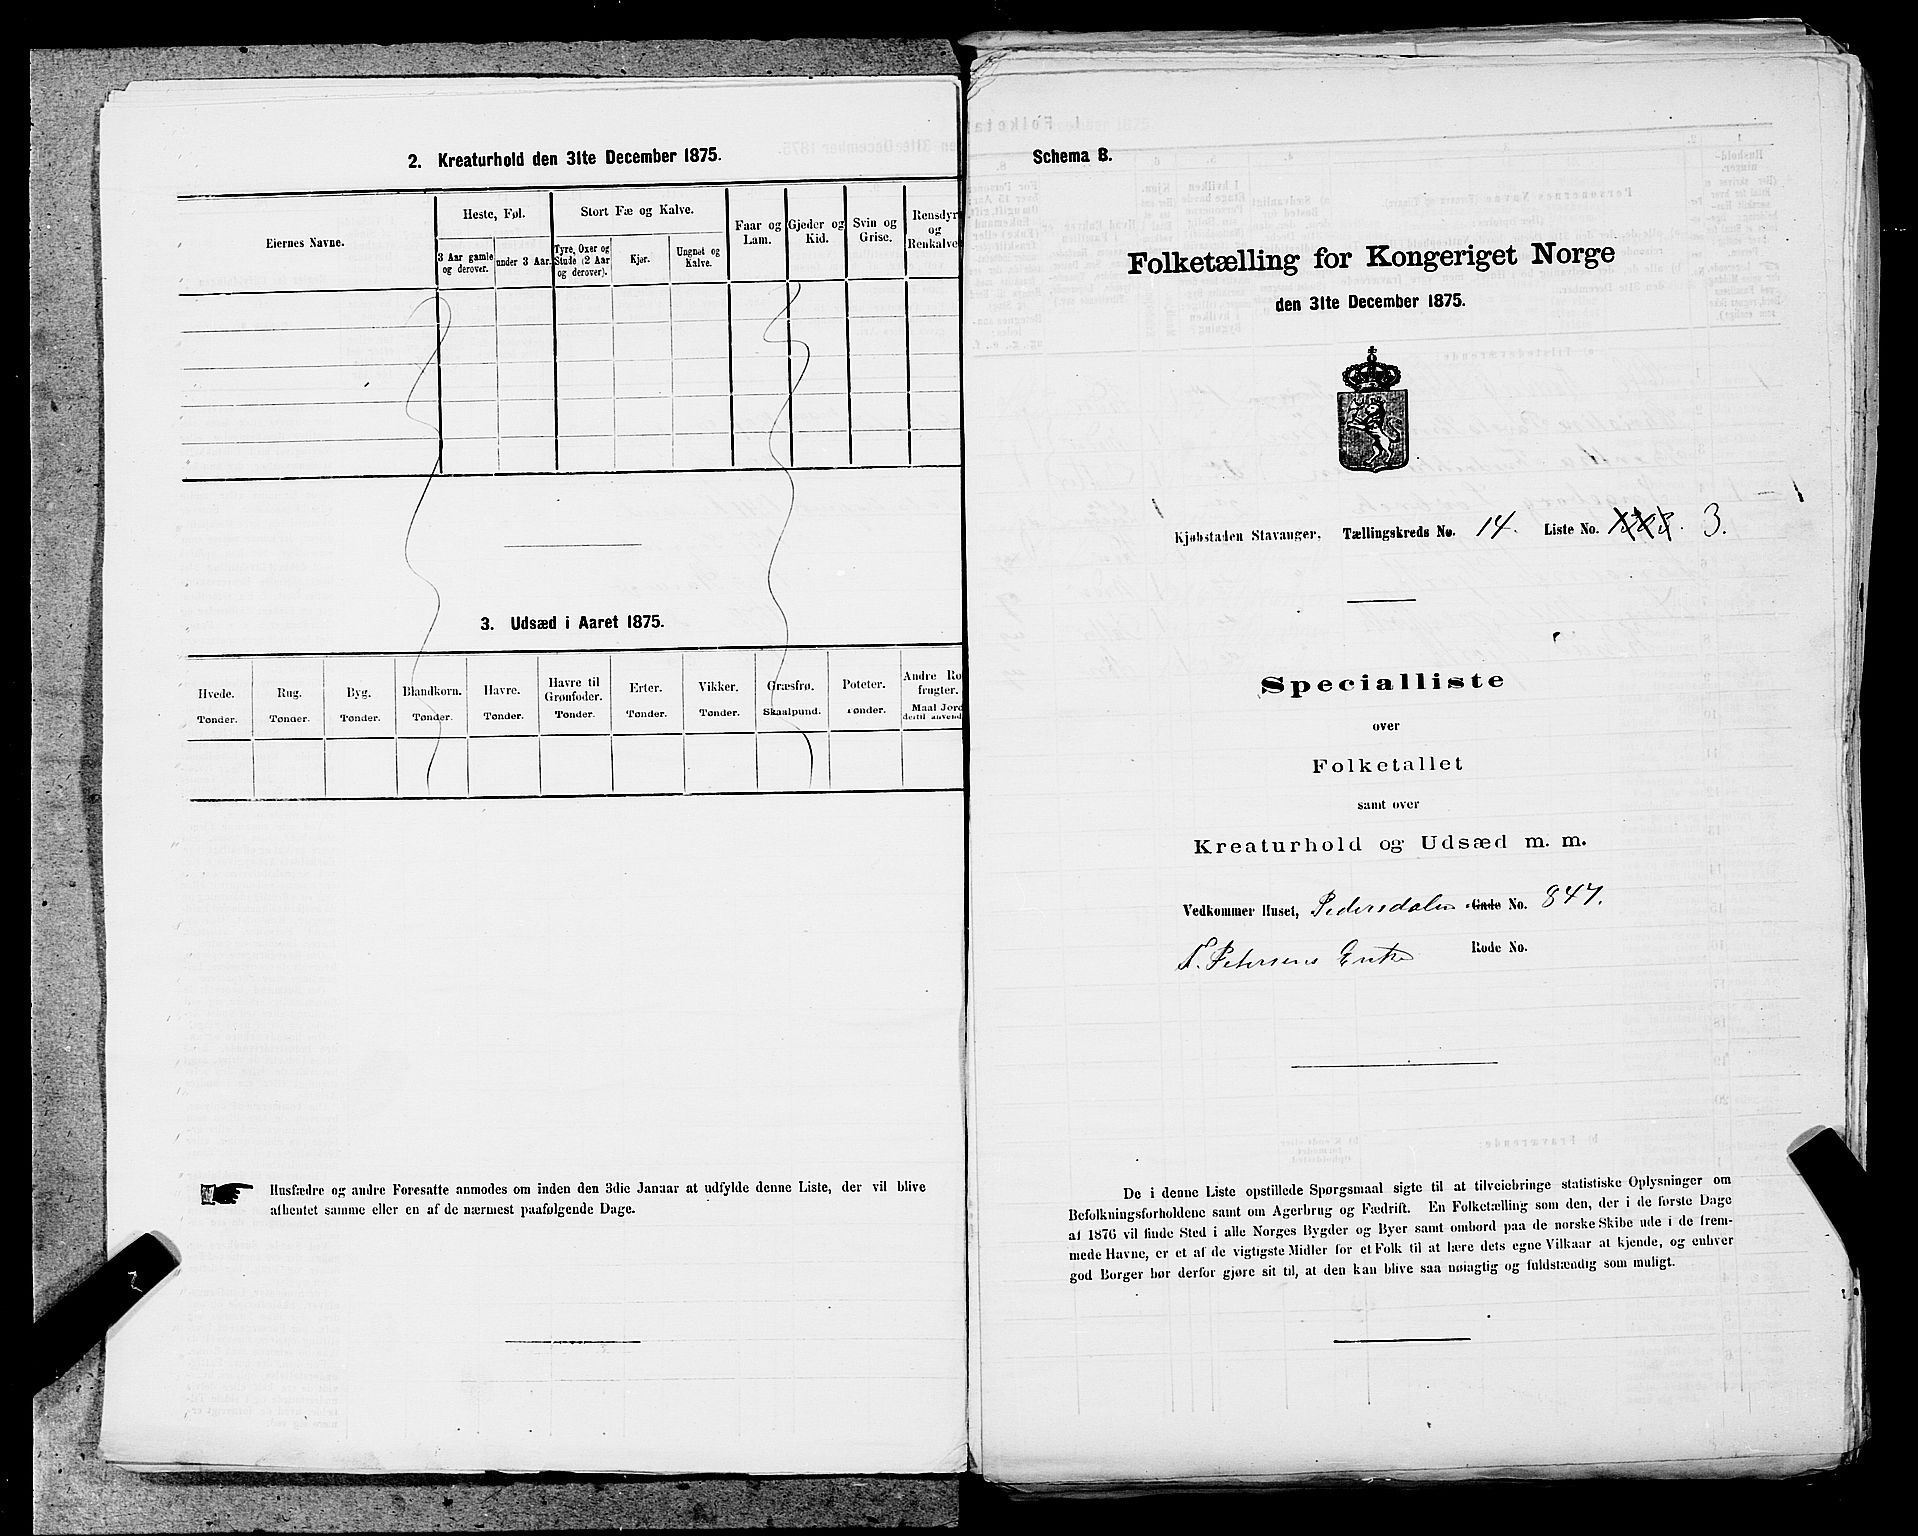 2. Kreaturhold den 31te December 1875.
Eiernes Navne.
Heste, Føl.
3 Aar gamle og derover.
under 3 Aar.
Stort Fæ og Kalve.
Tyre, Oxer og Stude (2 Aar og derover).
Kjør.
Ungnøt og Kalve.
Faar og Lam.
Gjeder og Kid.
Svin og Grise.
Rensdyr og Renkalve
3. Udsæd i Aaret 1875.
Hvede. Tønder.
Rug. Tønder.
Byg. Tønder.
Blandkorn. Tønder.
Havre. Tønder.
Havre til Grønfoder. Tønder.
Erter. Tønder.
Vikker. Tønder.
Græsfrø. Skaalpund.
Poteter. Tønder.
Andre Ro frugter. Maal Jord dertil anvend
Husfædre og andre Foresatte anmodes om inden den 3die Januar at udfylde denne Liste, der vil blive
afhentet samme eller en af de nærmest paafølgende Dage.
Schema B.
Folketælling for Kongeriget Norge
den 31te December 1875.
Kjøbstaden Stavanger. Tællingskreds No. 14. Liste No. 3.
Specialliste
over
Folketallet
samt over
Kreaturhold og Udsæd m. m.
Vedkommer Huset, Pedersdalen Gade No. 847.
Petersens Enke Rode No.
De i denne Liste opstillede Spørgsmaal sigte til at tilveiebringe statistiske Oplysninger om
Befolkningsforholdene samt om Agerbrug og Fædrift. En Folketælling som den, der i de første Dage
af 1876 vil finde Sted i alle Norges Bygder og Byer samt ombord paa de norske Skibe ude i de frem-
mede Havne, er et af de vigtigste Midler for et Folk til at lære dets egne Vilkaar at kjende, og enhver
god Borger bør derfor gjøre sit til, at den kan blive saa nøiagtig og fuldstændig som muligt.